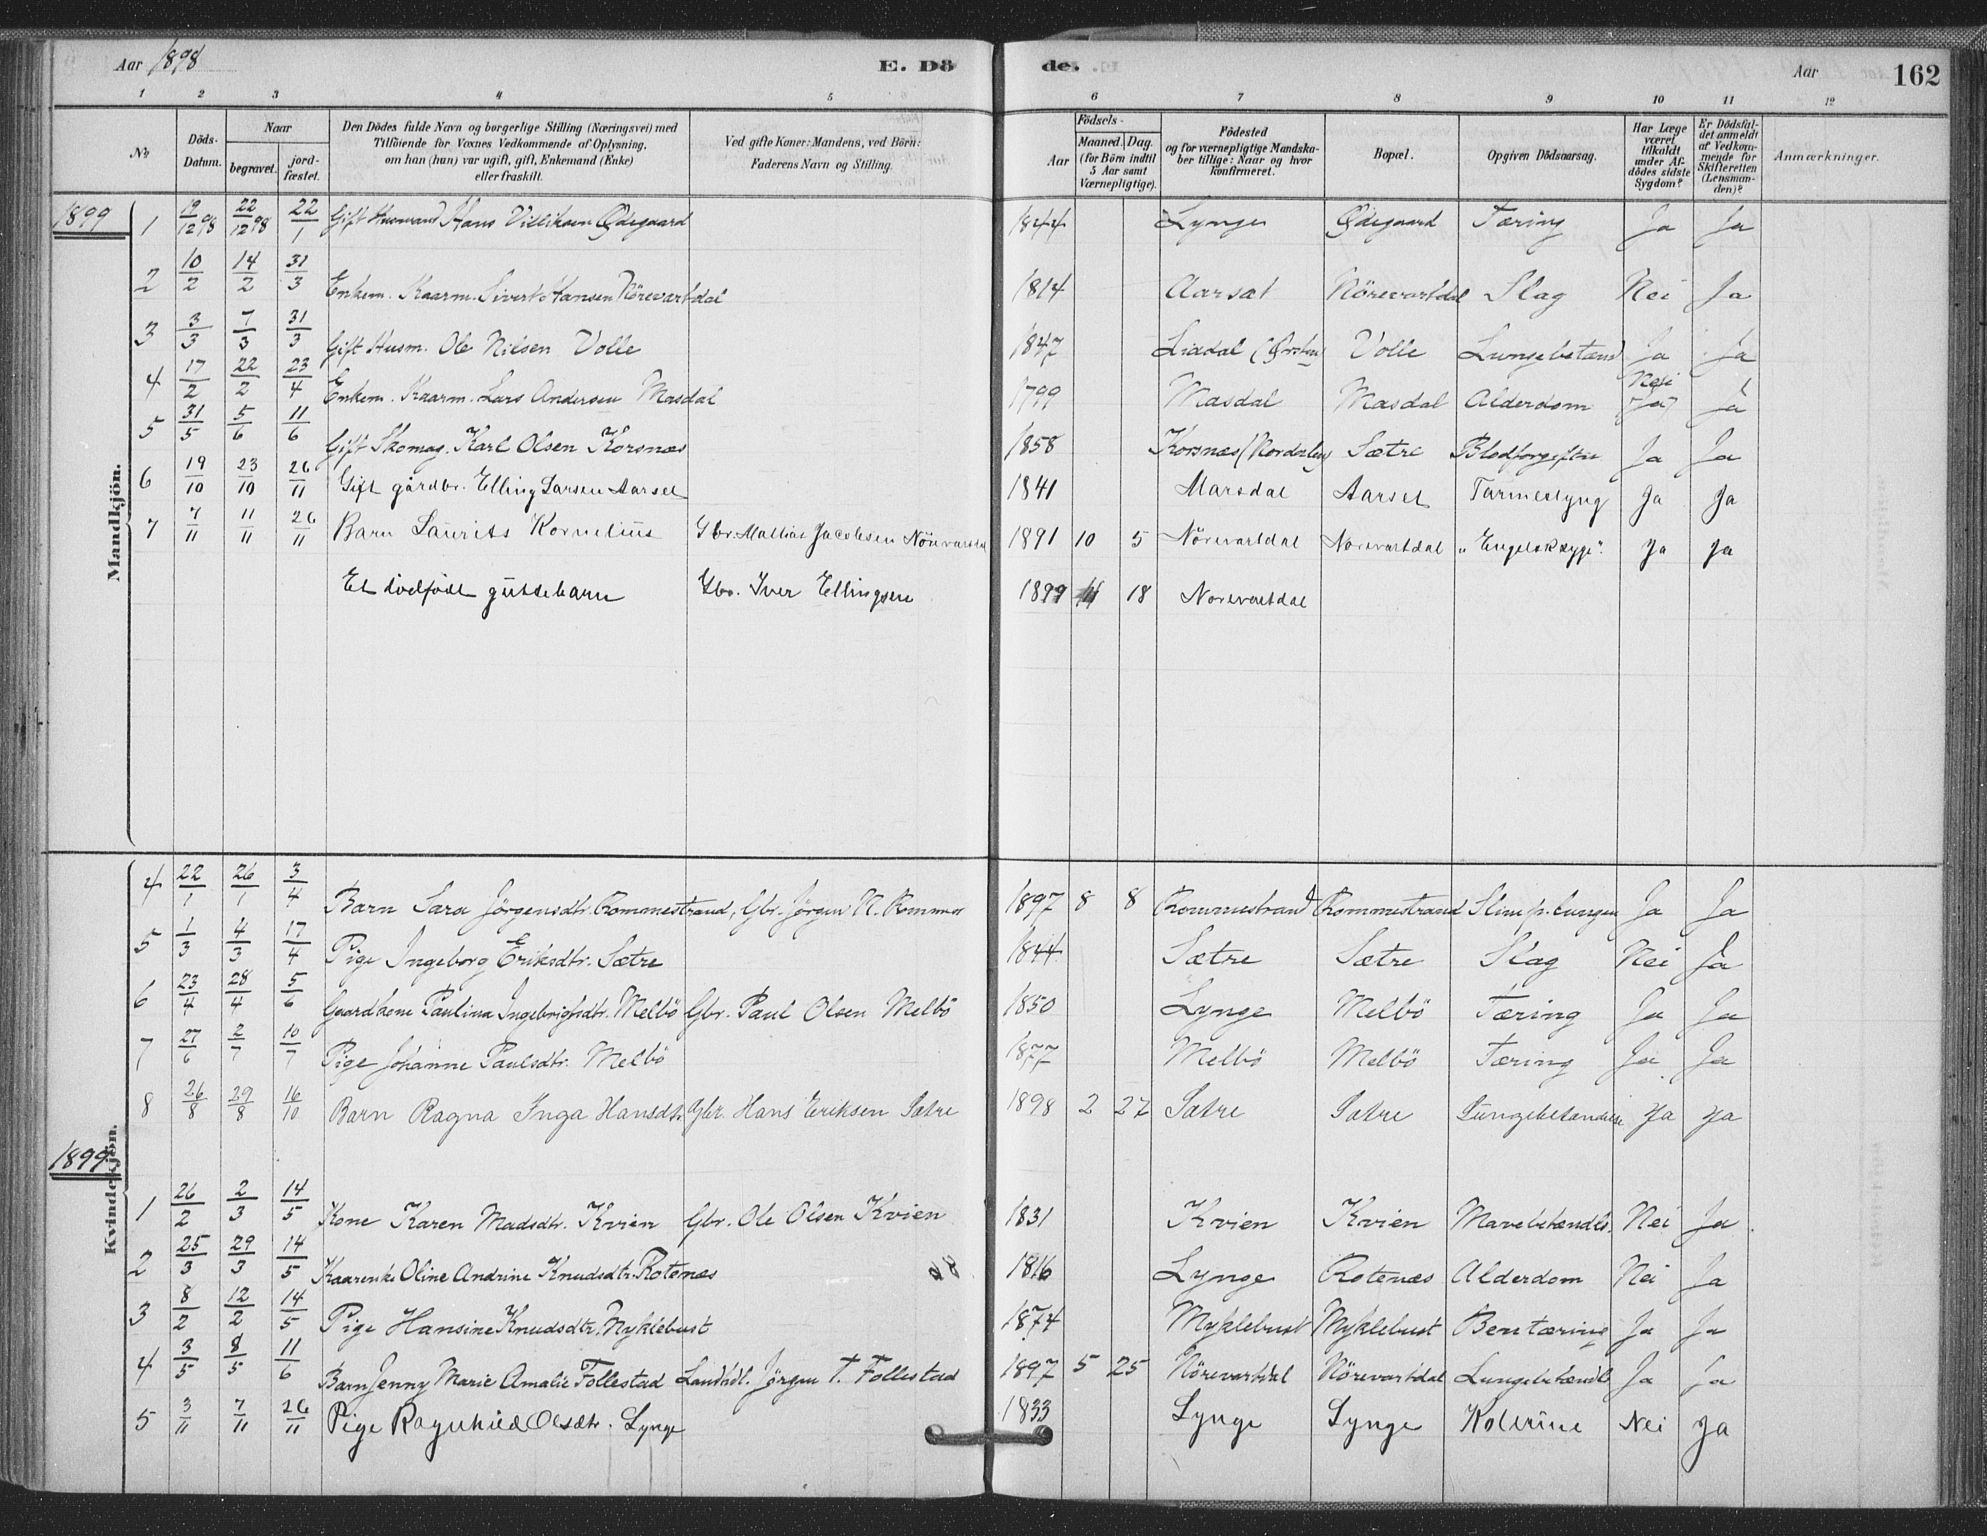 Aar 1898 E. Dö de. Aar 162
1 2 3 4 5 6 7 8 9 10 11 12
No. Döds-Datum. Naar begravet. jord-fæstet. Den Dödes fulde Navn og borgerlige Stilling (Næringsvei) med Tilföiende for Voxnes Vedkommende af Oplysning, om han (hun) var ugift, gift, Enkemand (Enke) eller fraskilt. Ved gifte Koner: Mandens, ved Börn: Faderens Navn og Stilling. Födsels- Aar Maaned. Dag. (for Börn indtil 5 Aar samt Værnepligtige). Födested og for værnepligtige Mandskaber tillige: Naar og hvor konfirmeret. Bopæl. Opgiven Dödsaarsag. Har Læge været tilkaldt under Afdödes sidste Sygdom? Er Dödsfaldet anmeldt af Vedkommende for Skifteretten (Lensmanden)? Anmærkninger.
Mandkjön.
1899 1 19/12 98 22/12 98 22/1 Gift Husmand Hans Villiksen Ødegaard 1844 Lynge Ødegaard Tæring Ja Ja
2 10/2 14/2 31/3 Enkem. Kaarm. Sivert Hansen Nörevartdal 1814 Aarsæt Nörevartdal Slag Nei Ja
3 3/3 7/3 31/3 Gift Husm. Ole Nilsen Volle 1847 Lisdal (Ørsten) Volle Lungebetænd Ja Ja
4 17/2 22/2 23/4 Enkem. Kaarm. Lars Andersen Masdal 1799 Masdal Masdal Alderdom Nei (Ja) Ja
5 31/5 5/6 11/6 Gift Skomag. Karl Olsen Korsnæs 1858 Korsnæs (Nordalen) Sætre Blodforgiftn Ja Ja
6 19/10 23/10 26/11 Gift gårdbr. Elling Larsen Aarset 1841 Marsdal Aarset Tarmeslyng Ja Ja
7 7/11 11/11 26/11 Barn Laurits Kornelius Gbr. Mathias Jacobsen Nörevartdal 1891 10 5 Nörevartdal Norevartdal "Engelsk syge". Ja Ja
Et dödfödt guttebarn Gbr. Iver Ellingsen 1899 11 18 Norevartdal
Kvindekjön.
4 22/1 26/1 3/4 Barn Sara Jörgensdtr. Rommestrand, Gbr. Jörgen N. Rommes 1897 8 8 Rommestrand Rommestrand Slim p. lungen Ja Ja
5 1/3 4/3 17/4 Pige Ingeborg Eriksdtr. Sætre 1844 Sætre Sætre Slag Nei Ja
6 23/4 28/4 5/6 Gaardkone Paulina Ingebrigtsdtr. Melbö Gbr. Paul Olsen Melbö 1850 Lynge Melbö Tæring Ja Ja
7 27/6 2/7 10/7 Pige Johanne Paulsdtr. Melbö 1877 Melbö Melbö Tæring Ja Ja
8 26/8 29/8 16/10 Barn Ragna Inga Hansdtr. Gbr. Hans Eriksen Satre 1898 2 27 Satre Satre Lungebetændelse Ja Ja
1899
1 26/2 2/3 14/5 Kone Karen Madsdtr. Kvien Gbr. Ole Olsen Kvien 1831 Kvien Kvien Mavebetændls. Nei Ja
2 25/3 29/3 14/5 Kaarenke Oline Andrine Knudsdtr. Rotenæs 1816 Lynge Rotenæs Alderdom Nei Ja
3 8/2 12/2 14/5 Pige Hansine Knudsdtr. Myklebust 1874 Myklebust Myklebust Bentæring Ja Ja
4 3/5 8/5 11/6 Barn Jenny Marie Amalie Follestad Landhdl. Jörgen T. Follestad 1897 5 25 Nörevartdal Nörevartdal Lungebetændl. Ja Ja
5 3/11 7/11 26/11 Pige Ragnhild Olsdtr. Lynge 1833 Lynge Lynge Kolerine Nei Ja